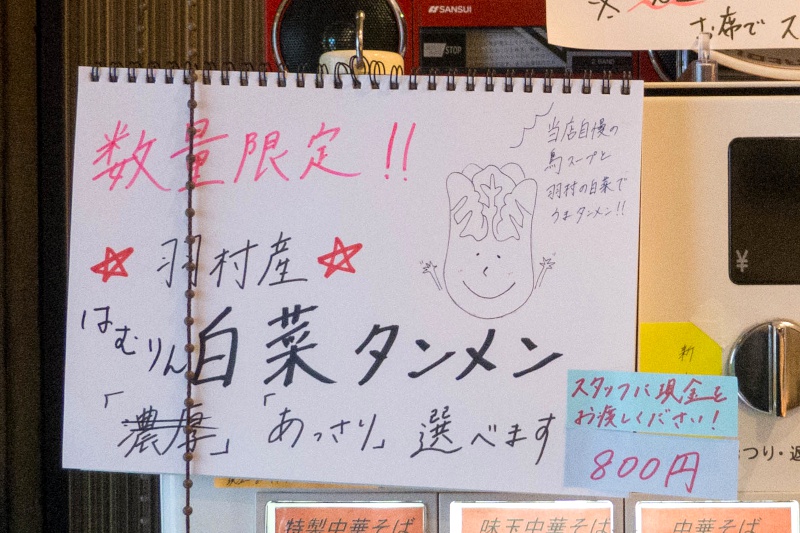 SANSUI
STOP
2 BAND
お席で ス
数量限定!!
当店自慢の
鳥スープと
羽村の白菜で
うまタンメン!!
☆羽村産☆
はむりん白菜タンメン
「濃厚」「あっさり」選べます
新
スタッフに現金を
お渡しください!
800円
¥
つり・返
特製中華そば
味玉中華そば
中華そば